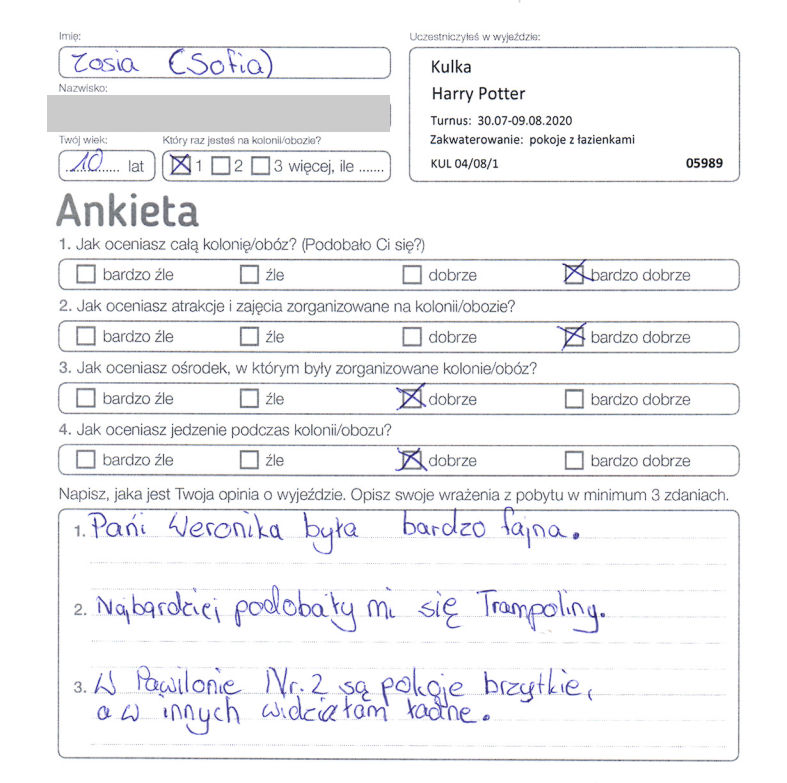 Imię:
Zosia (Sofia)
Uczestniczyłeś w wyjeździe:
Kulka
Harry Potter
Turnus: 30.07-09.08.2020
Zakwaterowanie: pokoje z łazienkami
KUL 04/08/1 05989
Nazwisko:
Twój wiek:
10 lat
Który raz jesteś na kolonii/obozie?
1 2 3 więcej, ile .......
Ankieta
1. Jak oceniasz całą kolonię/obóz? (Podobało Ci się?)
bardzo źle źle dobrze bardzo dobrze
2. Jak oceniasz atrakcje i zajęcia zorganizowane na kolonii/obozie?
bardzo źle źle dobrze bardzo dobrze
3. Jak oceniasz ośrodek, w którym były zorganizowane kolonie/obóz?
bardzo źle źle dobrze bardzo dobrze
4. Jak oceniasz jedzenie podczas kolonii/obozu?
bardzo źle źle dobrze bardzo dobrze
Napisz, jaka jest Twoja opinia o wyjeździe. Opisz swoje wrażenia z pobytu w minimum 3 zdaniach.
1. Pańi Weronika była bardzo fajna.
2. Najbardziej podobały mi się Trampoliny.
3. W Pawilonie Nr. 2 są pokoje brzytkie,
a w innych widziałam ładne.